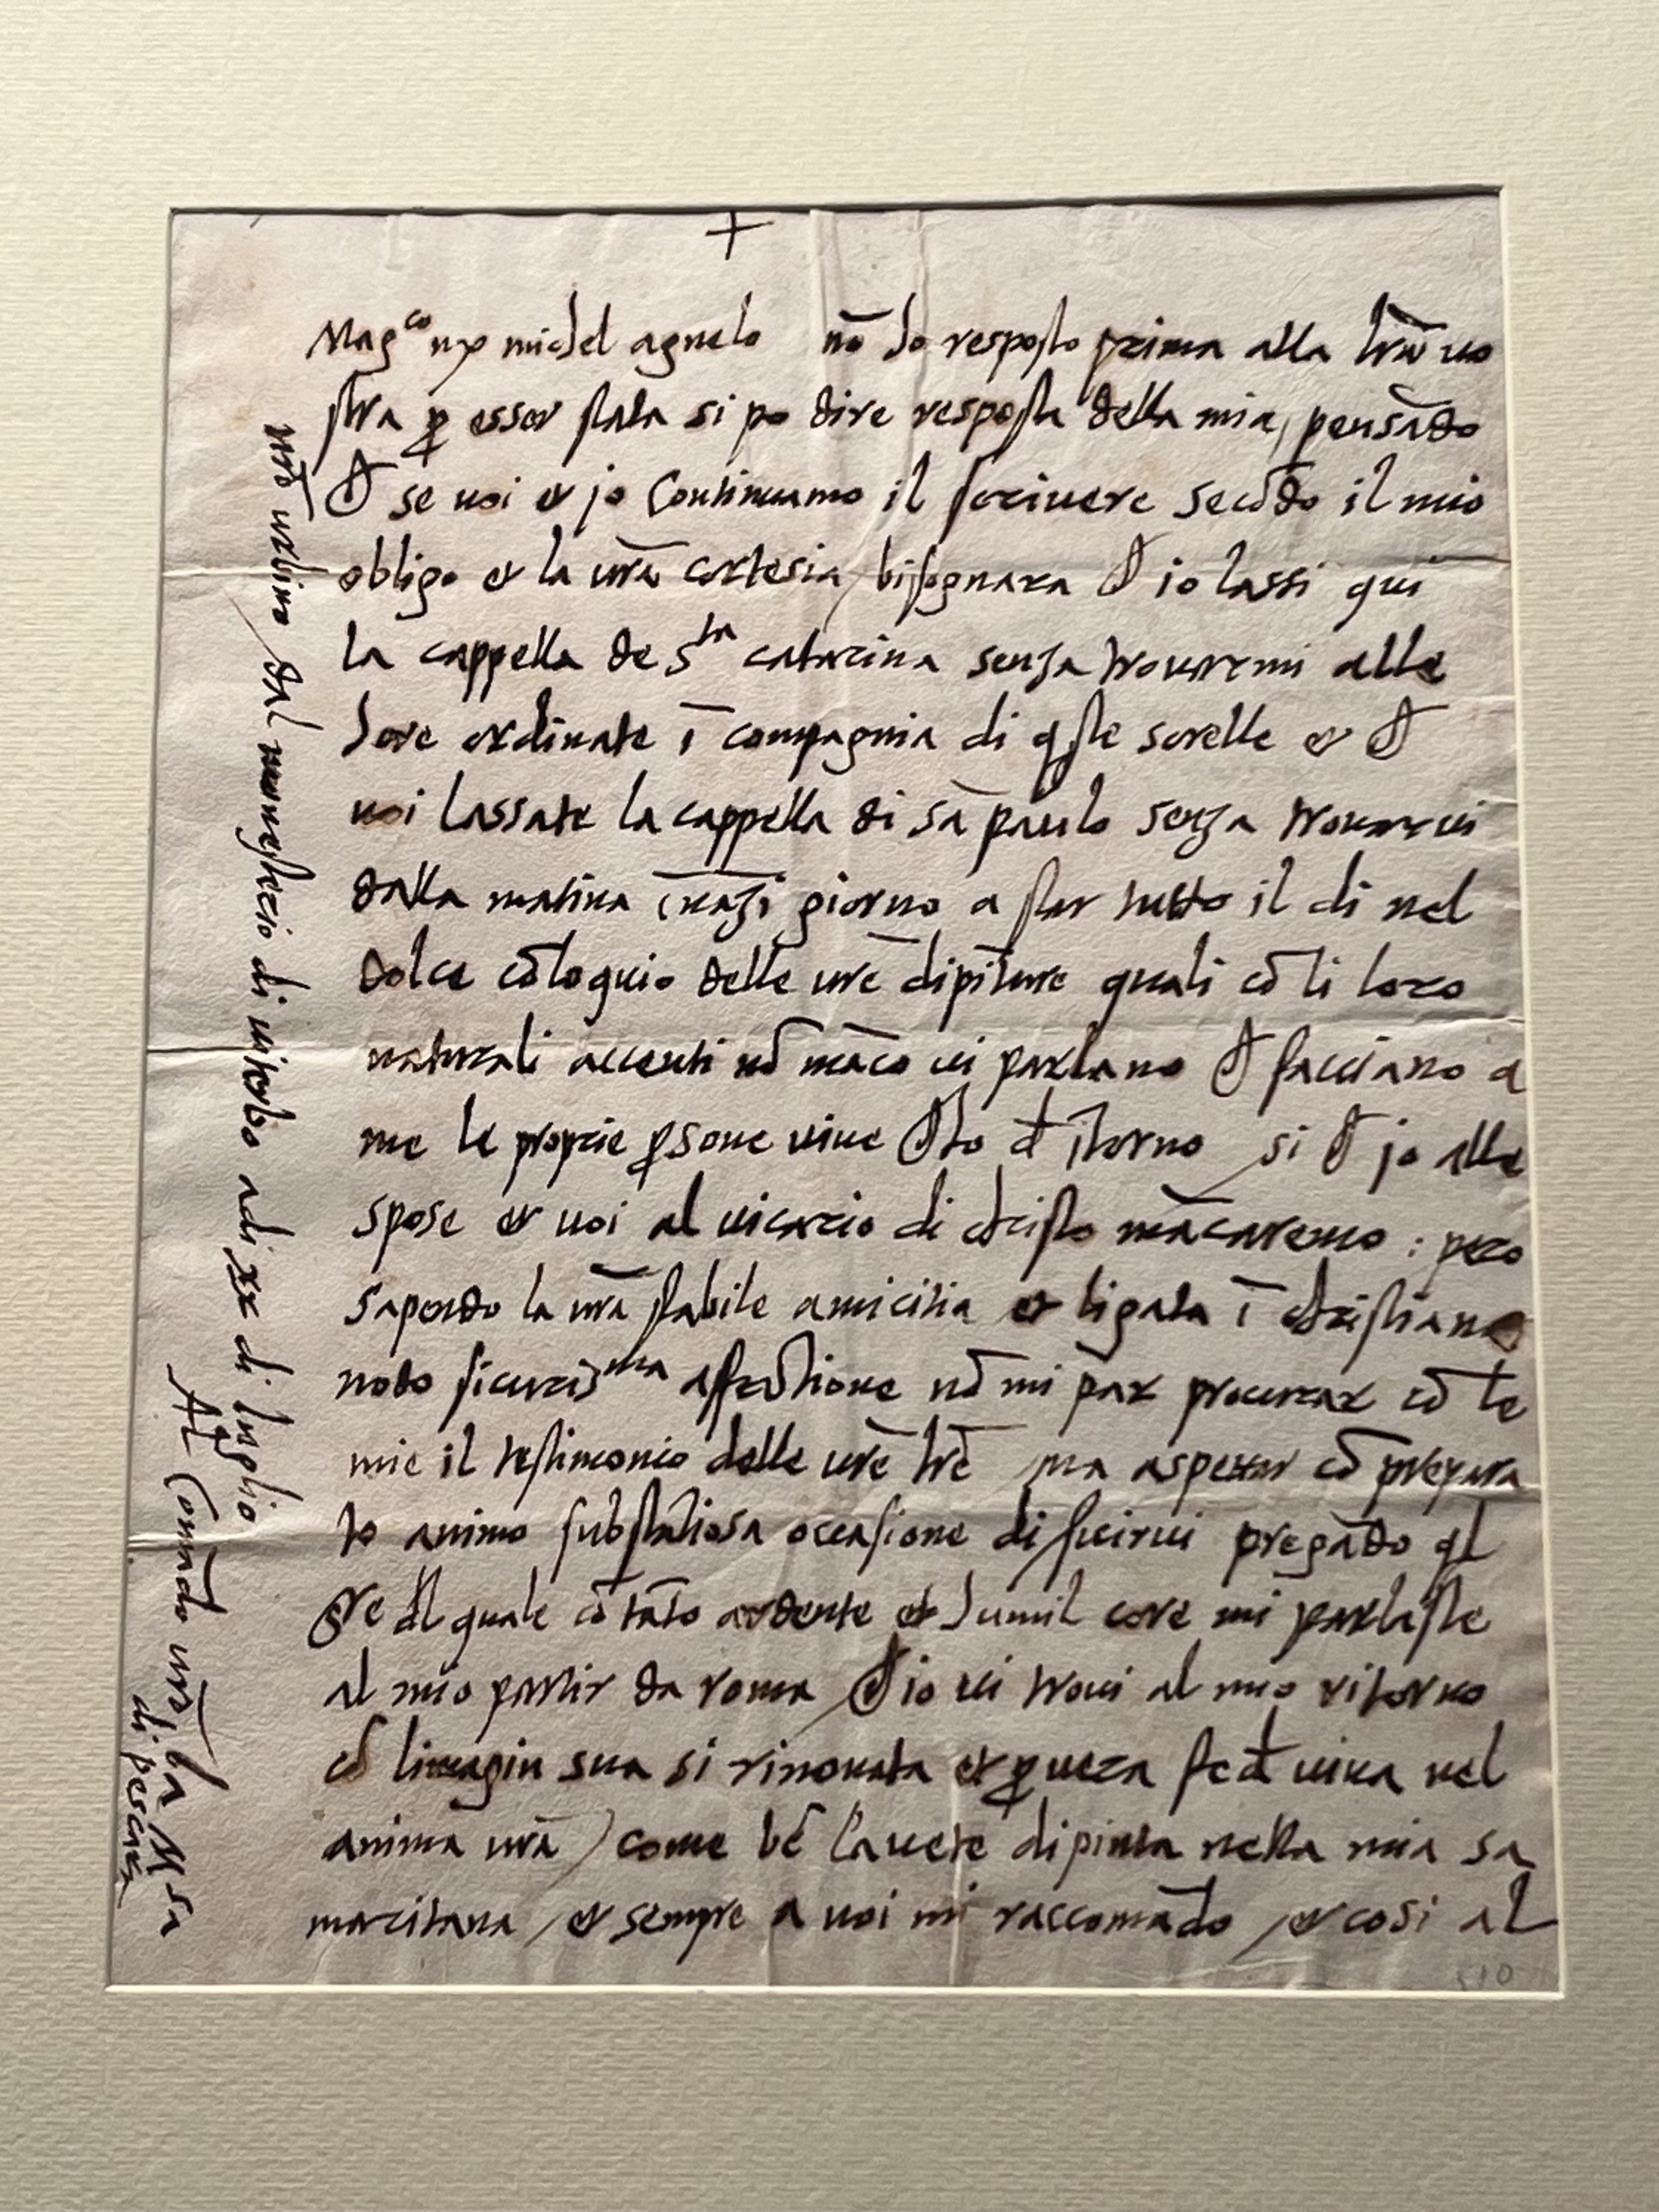 +
Mag^co mr michel agnelo nō ho resposto prima alla lr̄a vo
stra ꝑ esser stata si po dire resposta della mia, pensādo
ch se voi et jo continuamo il scrivere secōdo il mio
obligo et la vr̄a cortesia / bisognara ch io lassi qui
la cappella de S^ta catarina senza trovarmi alle
hore ordinate ī compagnia di qste sorelle et ch
voi lassate la cappella di sā paulo senza trovarvi
dalla matina īnāzi giorno a star tutto il di nel
dolce cōloquio delle vr̄e dipīture quali cō li loro
naturali accenti nō māco vi parlano ch facciano a
me le proprie ꝑsone vive ch ho d ītorno / si ch jo alle
spose et voi al vicario di christo mācaremo : pero
sapendo la vr̄a stabile amicitia et ligata ī christiano
nodo sicuris^ma affectione nō mi par procurar cō le
mie il testimonio delle vr̄e lr̄e / ma aspettar cō prepara
to animo substātiosa occasione di servirvi pregādo ql
Sr̄e del quale cō tāto ardente et humil core mi parlaste
al mio partir da roma / ch io vi trovi al mio ritorno
cō limagin sua si rinovata et ꝑ vera fede viva nel
anima vr̄a / come bē l'avete dipinta nella mia sa
maritana / et sempre a voi mi raccomādo / et cosi al
vr̄o urbino / dal monesterio di viterbo adi xx di luglio
Al comādo vr̄o / la M sa
di pescara
510